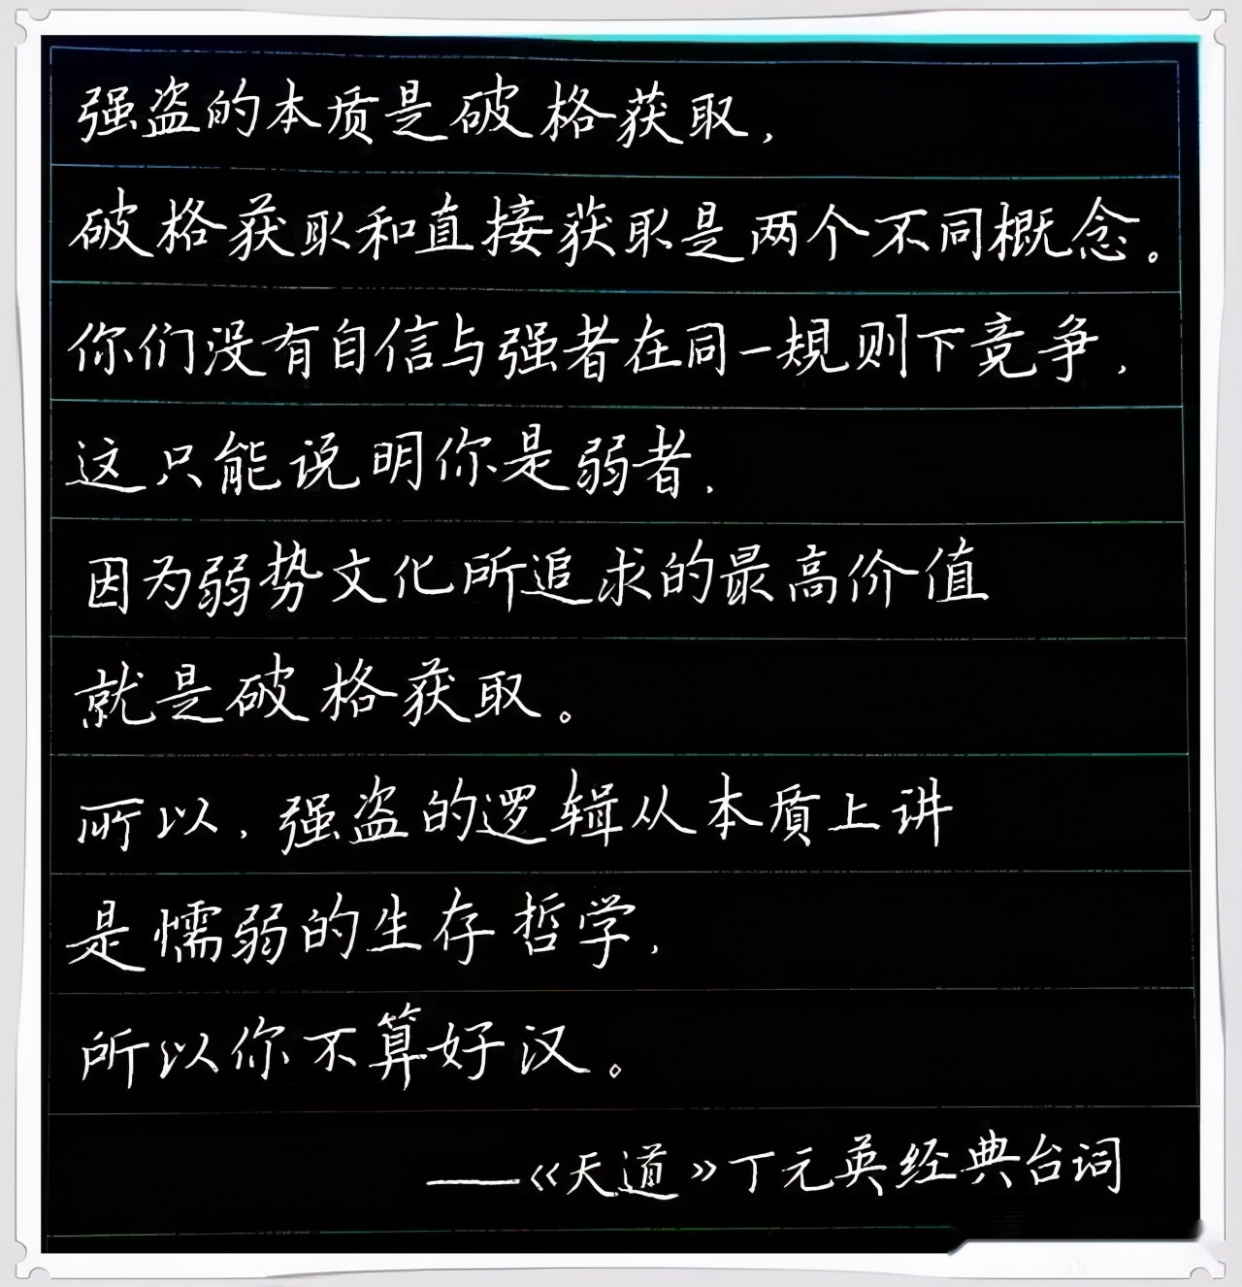 强盗的本质是破格获取，
破格获取和直接获取是两个不同概念。
你们没有自信与强者在同一规则下竞争，
这只能说明你是弱者，
因为弱势文化所追求的最高价值
就是破格获取。
所以，强盗的逻辑从本质上讲
是懦弱的生存哲学，
所以你不算好汉。
——《天道》丁元英经典台词